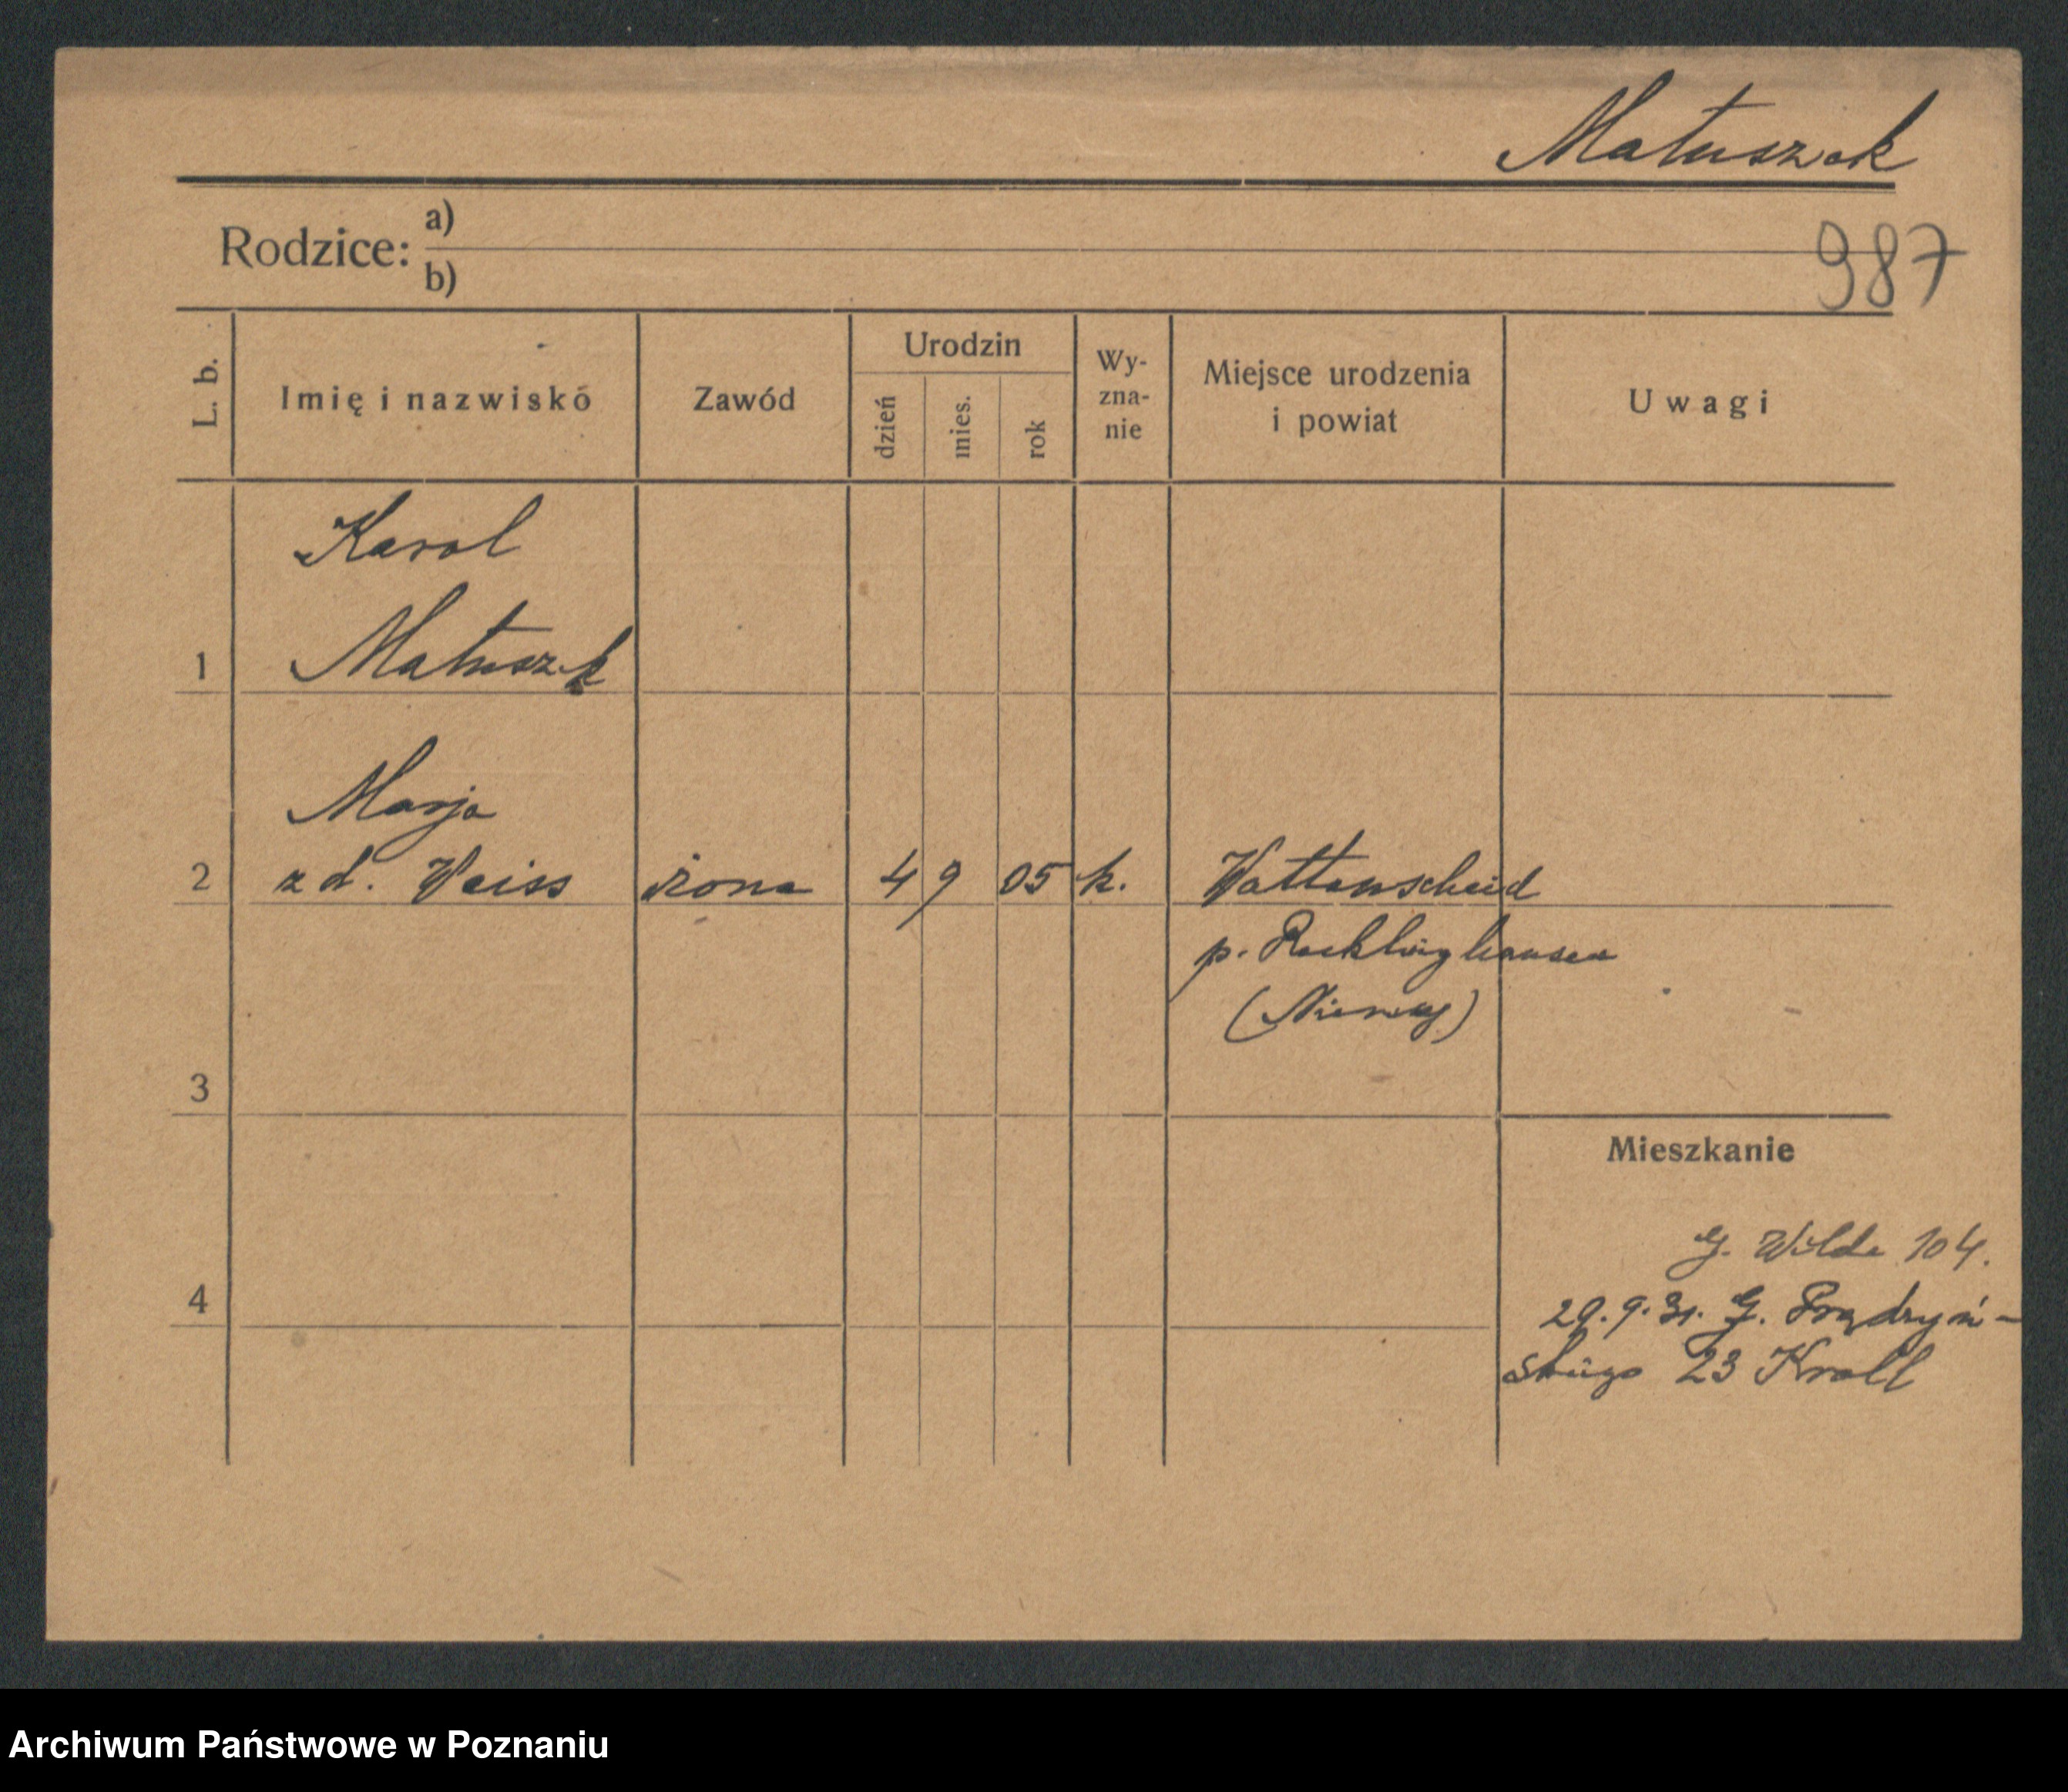 Matuszak
Rodzice: a)
b)
987
L. b.
Imię i nazwisko
Zawód
Urodzin
dzień
mies.
rok
Wy-
zna-
nie
Miejsce urodzenia
i powiat
Uwagi
Karol
1 Matuszak
Marja
2 z d. Weiss żona 4 9 05 k. Wattenscheid
p. Recklinghausen
(Niemcy)
3
Mieszkanie
G. Wilda 104.
4 29.9.31. G. Prądzyń-
skiego 23 Kroll
Archiwum Państwowe w Poznaniu